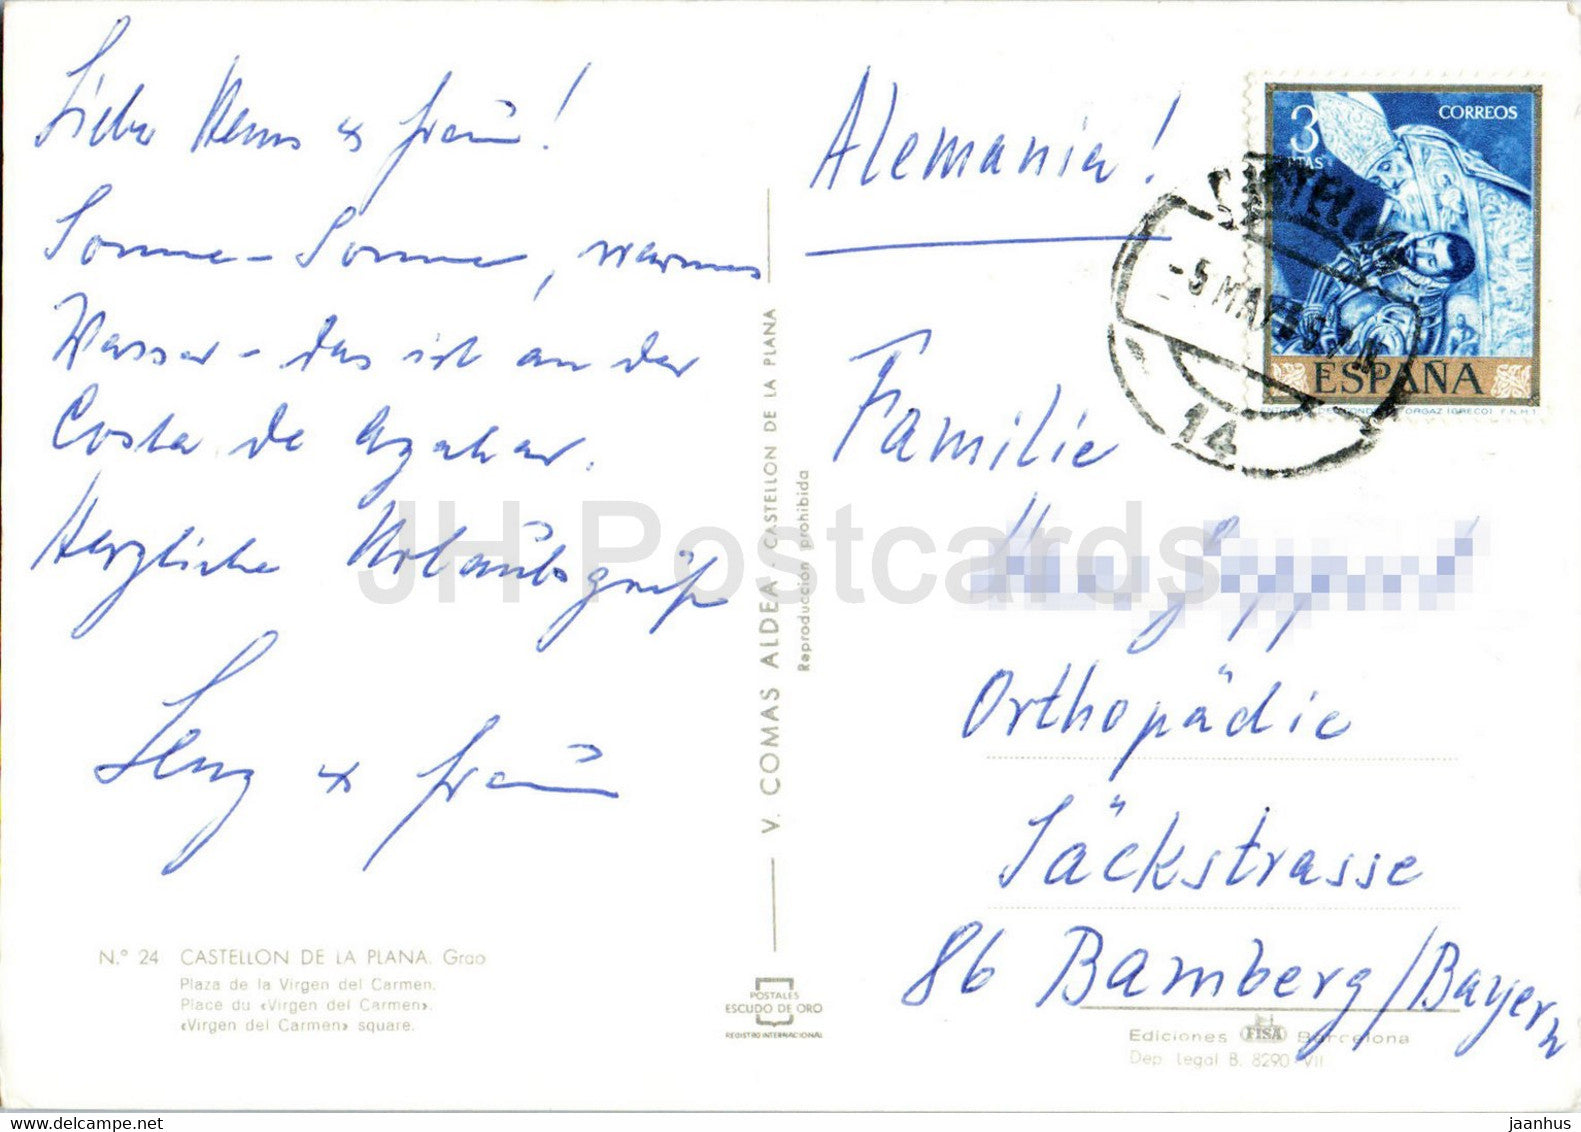 Liebe Henns & Frau!
Sonne - Sonne, warmes
Wasser - das ist an der
Costa de Azahar.
Herzliche Urlaubsgrüße
Lenz & Frau
N.º 24 CASTELLON DE LA PLANA. Grao
Plaza de la Virgen del Carmen.
Place du «Virgen del Carmen».
«Virgen del Carmen» square.
V. COMAS ALDEA - CASTELLON DE LA PLANA
Reproducción prohibida
POSTALES
ESCUDO DE ORO
REGISTRO INTERNACIONAL
Alemania!
3 CORREOS
PTAS
ESPAÑA
ORGAZ (GRECO) F.N.M.T.
CASTELLON
-5 MAY
14
Familie
Orthopädie
Säckstrasse
86 Bamberg/Bayern
Ediciones FISA Barcelona
Dep. Legal B. 8290-VII
JH Postcards
www.delcampe.net
jaanhus